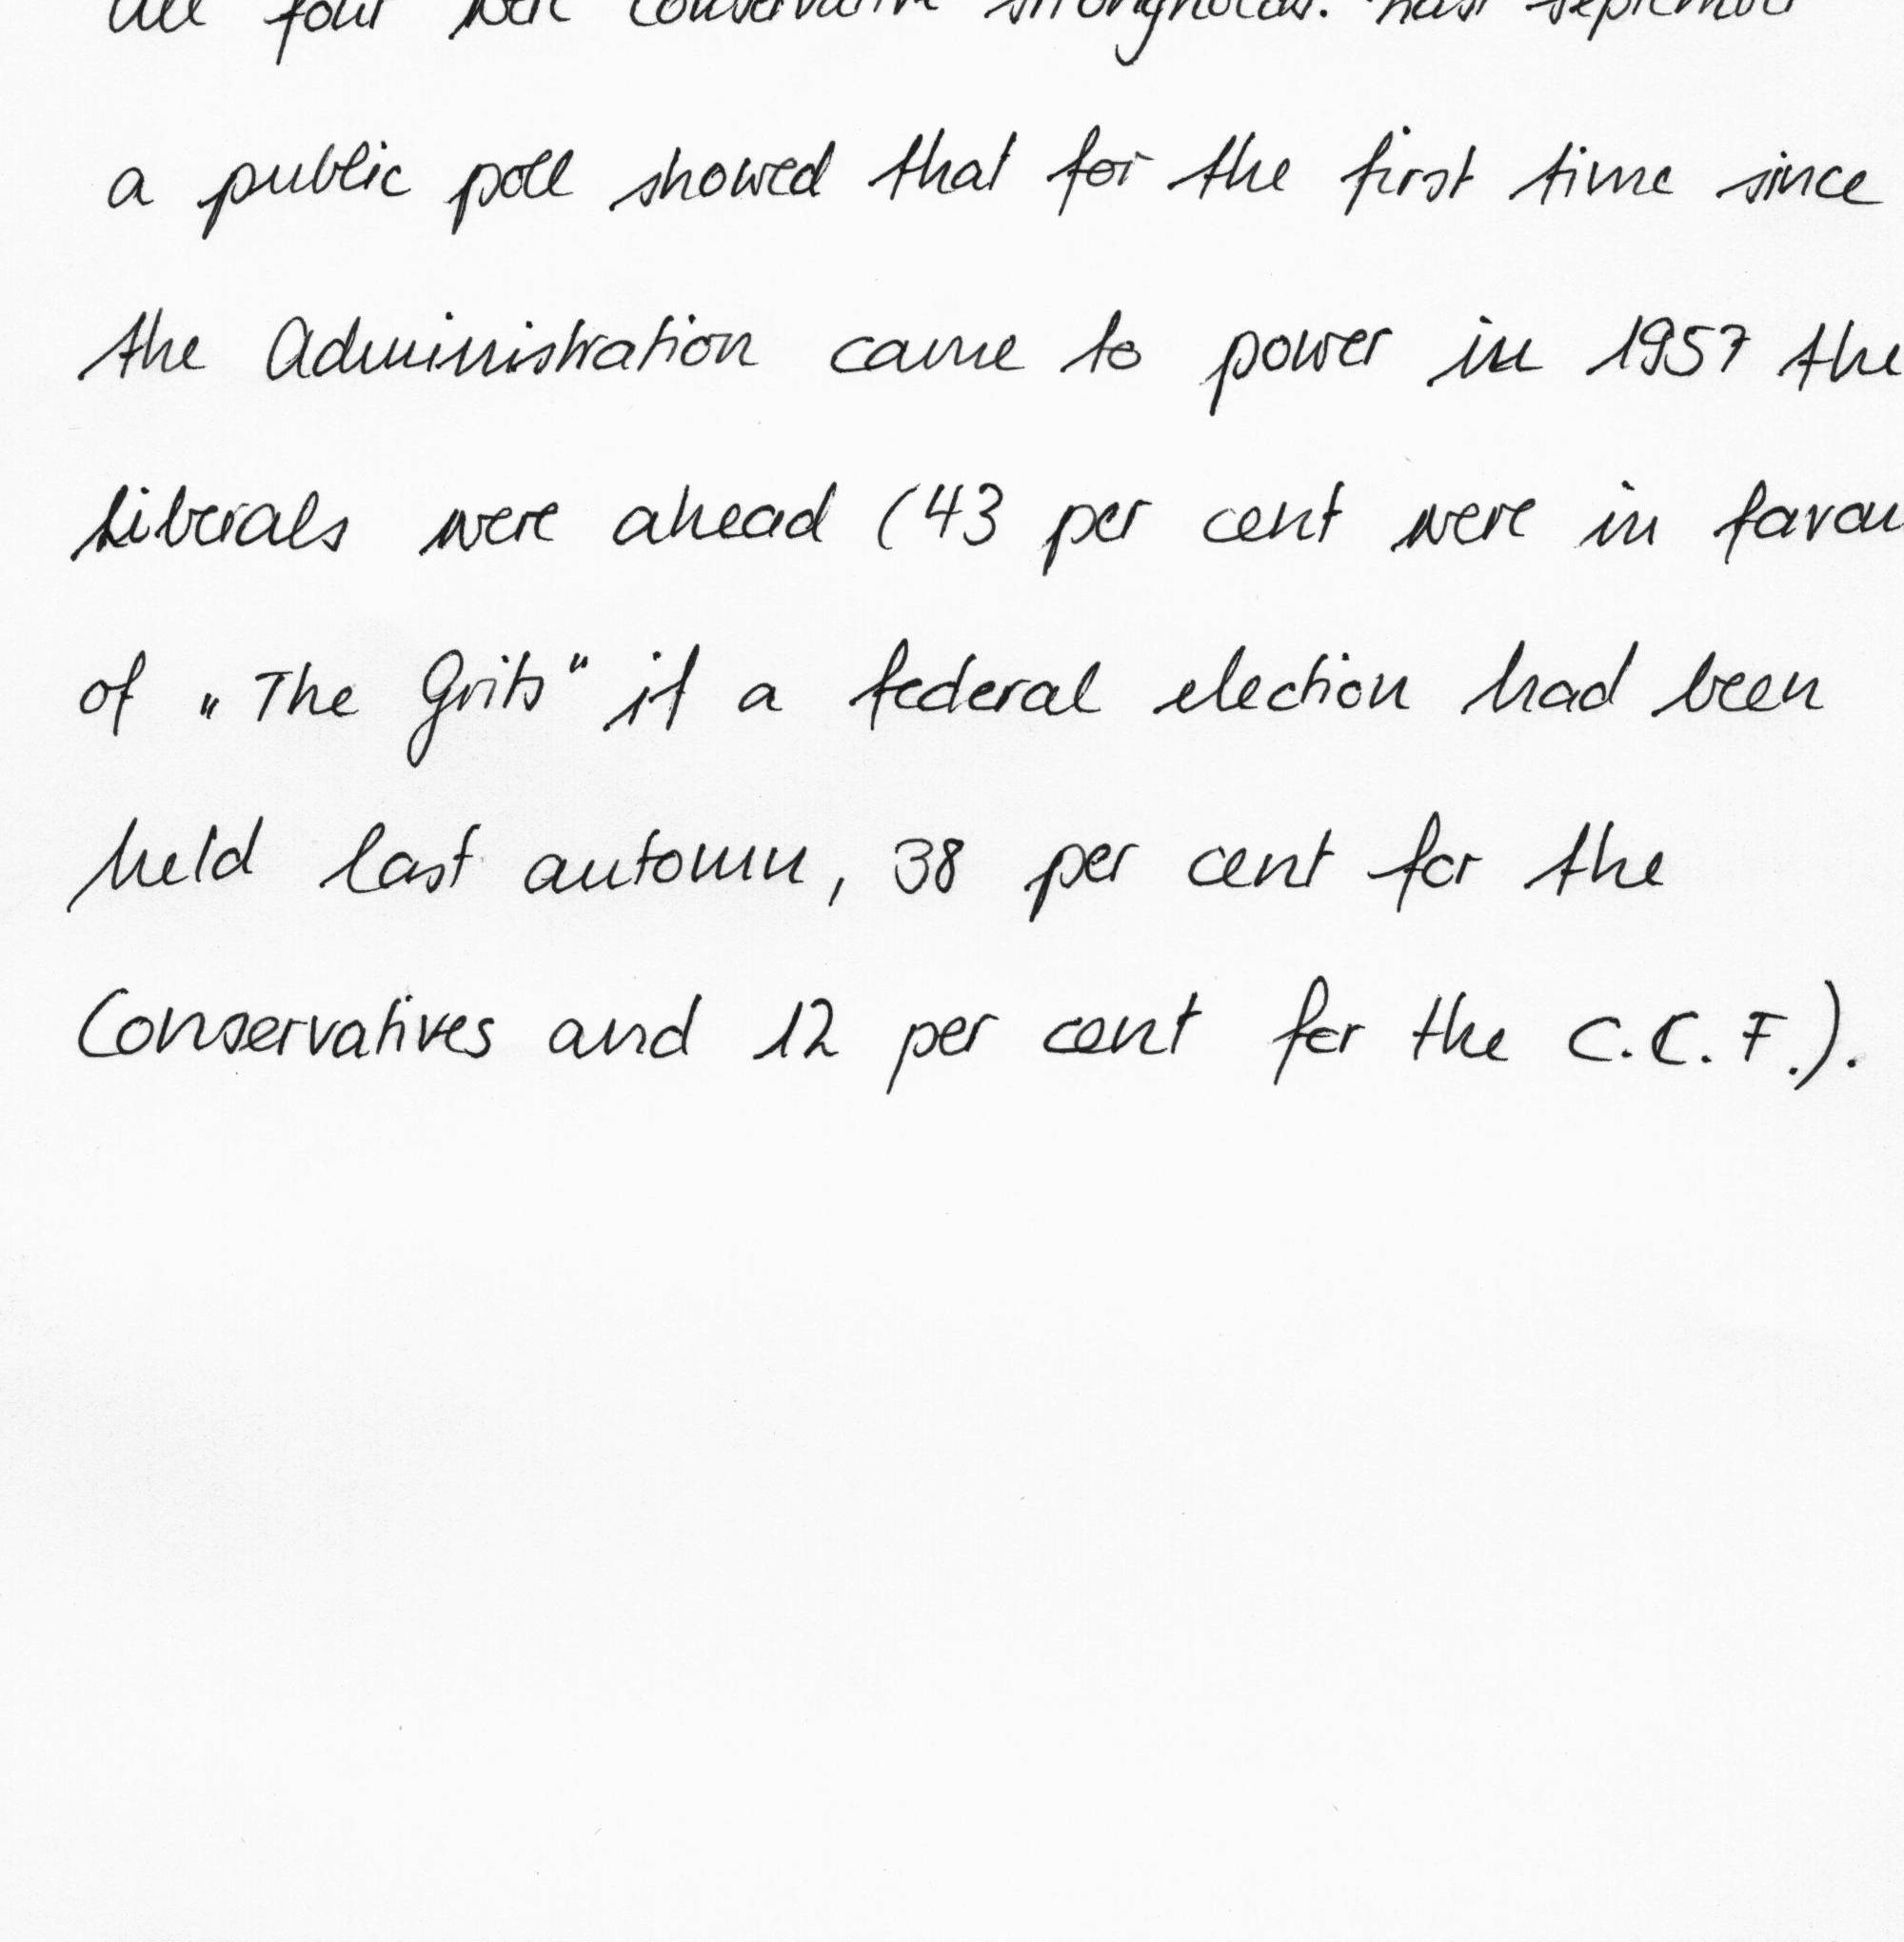 All four were Conservative strongholds. Last September
a public poll showed that for the first time since
the Administration came to power in 1957 the
Liberals were ahead (43 per cent were in favou
of „The Grits“ if a federal election had been
held last automn, 38 per cent for the
Conservatives and 12 per cent for the C.C.F.).